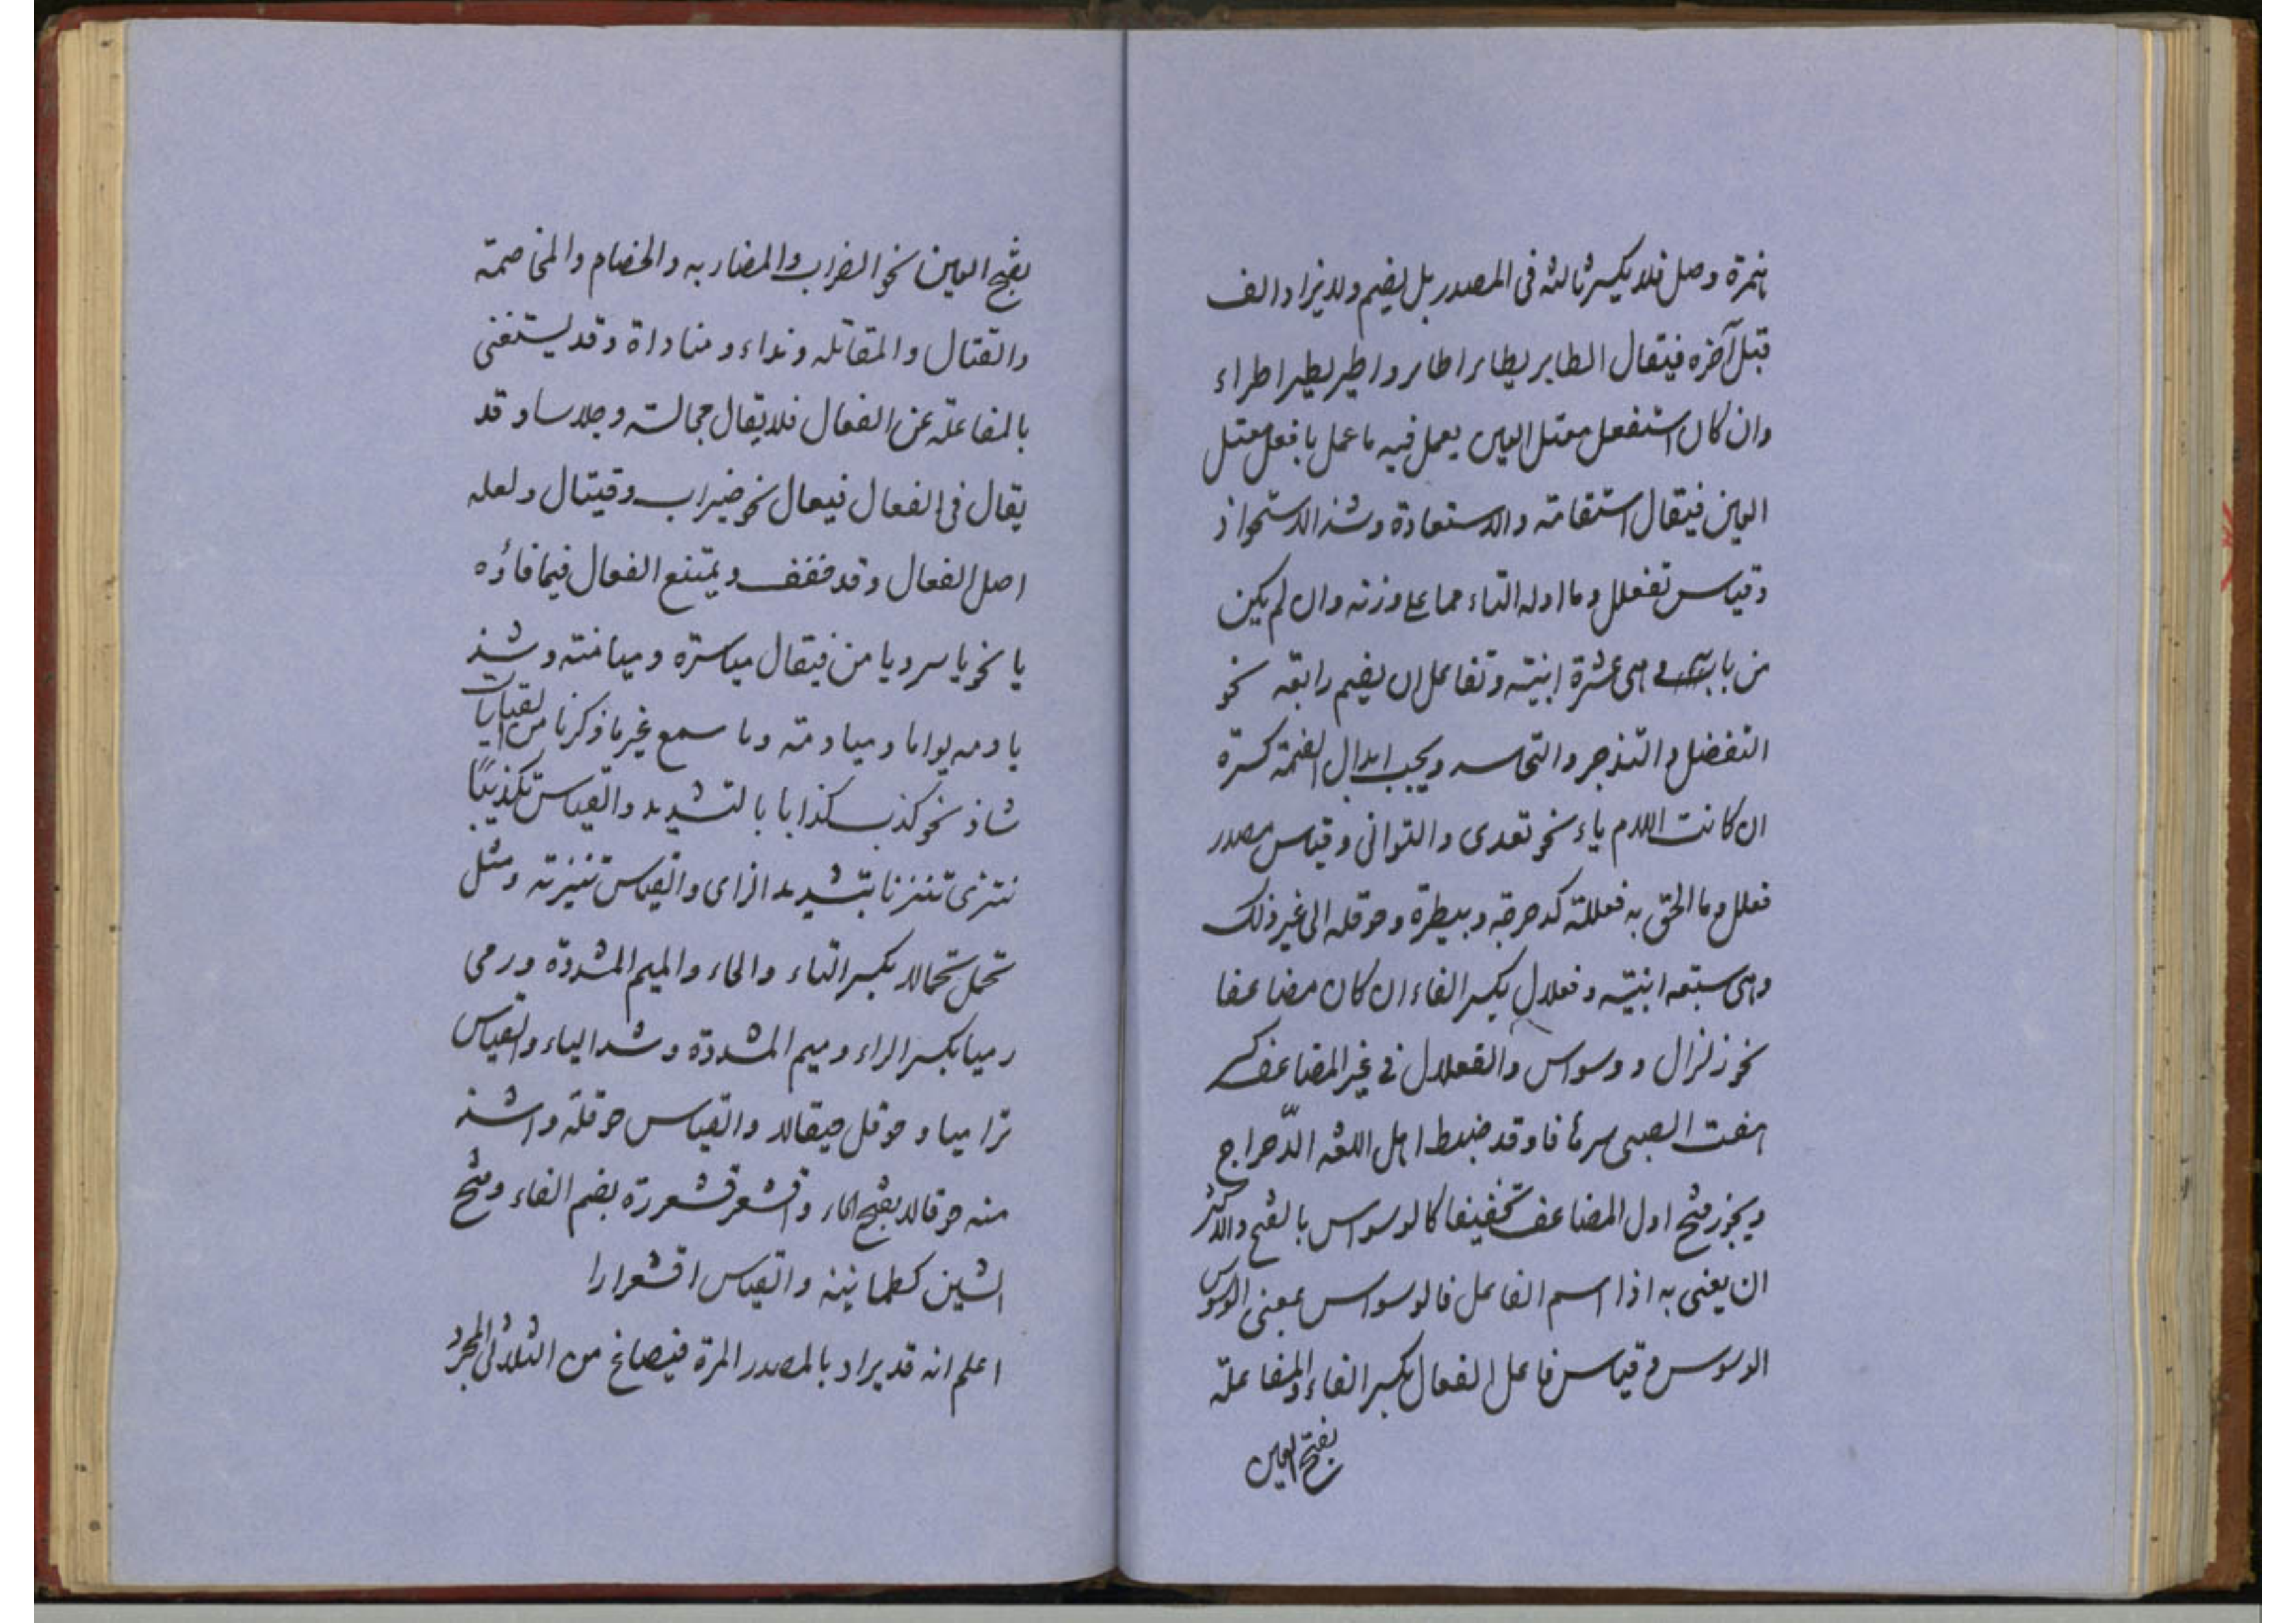 همزة وصل فلا یکسر ثالثه فی المصدر بل یضم ولا یزاد الف
قبل آخره فیقال اطایر یطایر اطایر واطیر یطیر اطیراء
وان کان استفعل معتل العین یعمل فیه ما عمل بافعل معتل
العین فیقال استقامة والاستعاذة وشذ الاستحواذ
وقیاس تفعلل وما اوله التاء مما علی وزنه وان لم یکن
من بابه وهی عشرة ابنیة وتفاعل ان یضم رابعه نحو
التفضل والتدحرج ویجب ابدال الضمة کسرة
ان کانت اللام یاء نحو تعدی والتوانی وقیاس مصدر
فعلل وما الحق به فعللة کدحرجة وبیطرة وحوقلة الی غیر ذلک
وهی سبعة ابنیة وفعلال بکسر الفاء ان کان مضاعفا
نحو زلزال ووسواس والفعلال فی غیر المضاعف کسر
هفت الصبی سرهافا وقد ضبط اهل اللغه الدّحراج
ویجوز فتح اول المضاعف تخفیفا کالوسواس بالفتح والاکثر
ان یعنی به اذا اسم الفاعل فالوسواس بمعنی الوسوس
الوسوس وقیاس فاعل الفعال بکسر الفاء والمفاعلة
بفتح العین
بفتح العین نحو الضراب والمضاربه والخصام والمخاصمة
والقتال والمقاتله ونداء ومناداة وقد یستغنی
بالمفاعلة عن الفعال فلا یقال جالسته وجلاسا وقد
یقال فی الفعال فیعال نحو ضیراب وقیتال ولعله
اصل الفعال وقد خفف ویمتنع الفعال فیما فاؤه
یا نحو یاسر ویامن فیقال میاسرة ومیامنة وشذ
یاومه یواما ومیاومة وما سمع غیر ما ذکرنا من القیاسات
شاذ نحو کذب کذابا بالتشدید والقیاس تکذیبًا
تنزی تنزیا بتشدید الزای والقیاس تنزیة ومثل
تحمل تحمالا بکسر التاء والحاء والمیم المشددة ورمی
رمیا بکسر الراء ومیم المشددة وشد الیاء والقیاس
ترامیا وحوقل حیقالا والقیاس حوقلة واشذ
منه حوقالا بفتح الحاء واقشعر قشعررة بضم الفاء وفتح
الشین کطمانینه والقیاس اقشعرارا
اعلم انه قد یراد بالمصدر المرة فیصاغ من الثلاثی المجرد